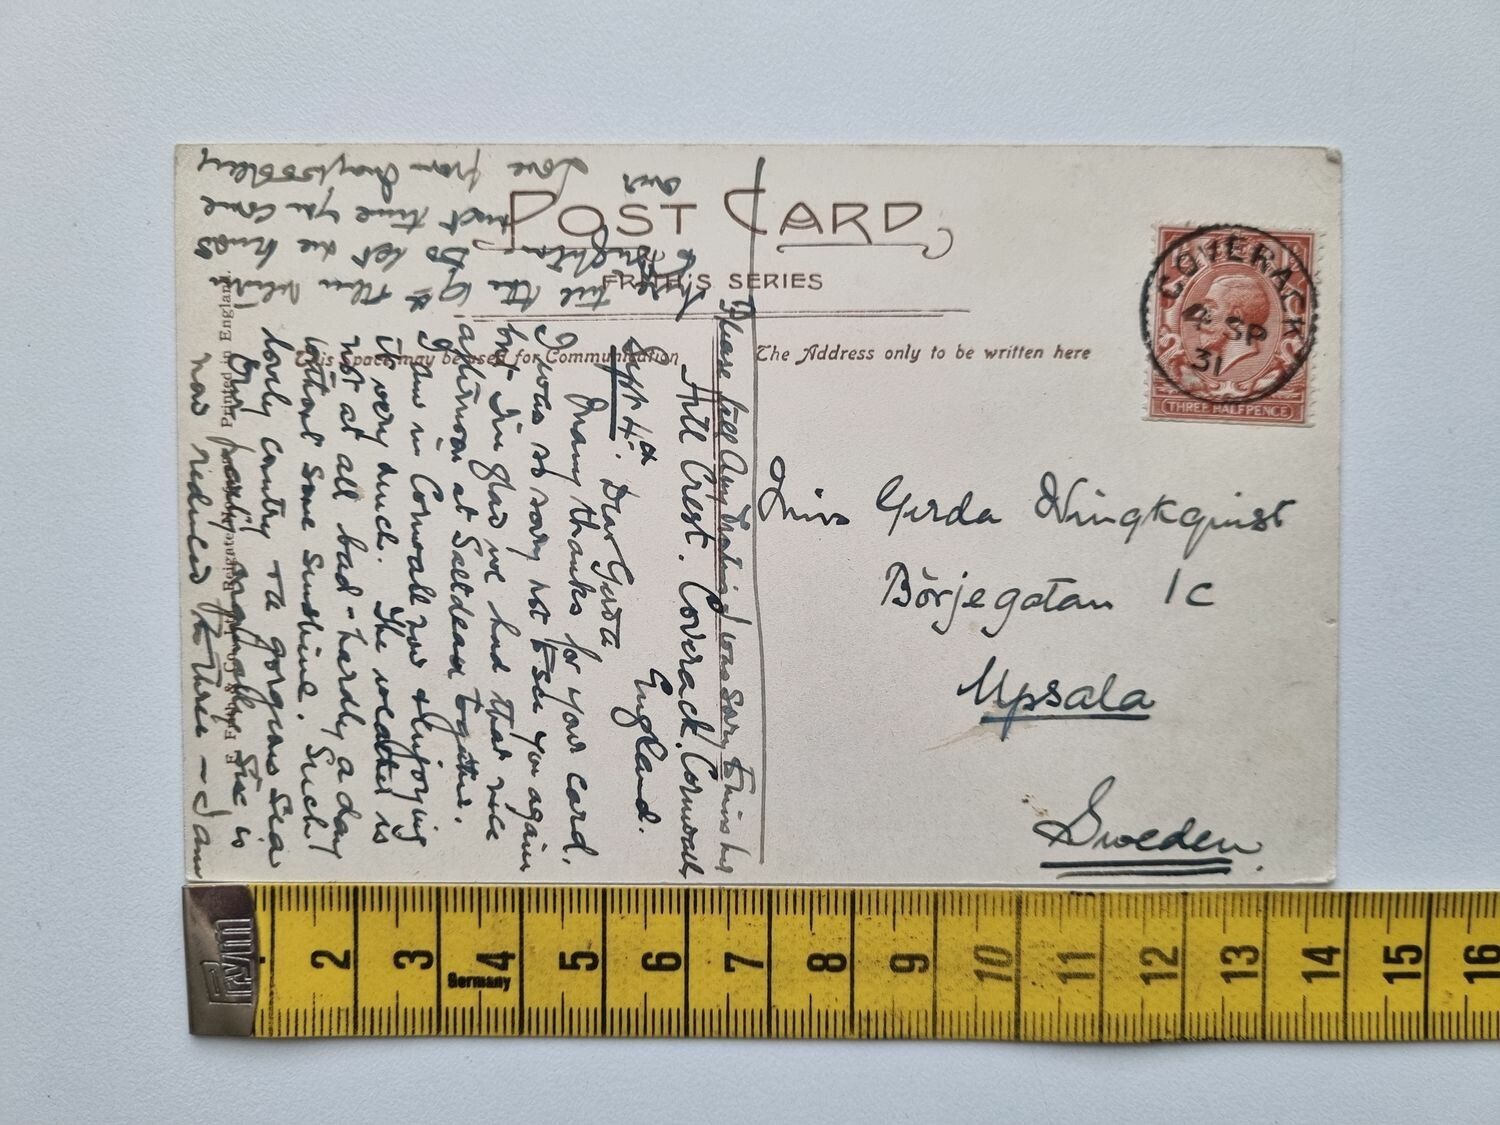 POST CARD
FRITH'S SERIES
This Space may be used for Communication
The Address only to be written here
COVERACK
4 SP
31
THREE HALFPENCE
Miss Gerda Wingkquist
Börjegatan 1C
Upsala
Sweden.
Please tell I was sorry to miss her
Hill Crest. Coverack. Cornwall
England.
Sept 4th. Dear Gerda
Many thanks for your card.
I was so sorry not to see you again
but I'm glad we had that nice
afternoon at Saltdean together.
I am in Cornwall now & enjoying
it very much. The weather is
not at all bad - hardly a day
without some sunshine. Such
lovely country & a gorgeous sea
Our party originally six is
now reduced to three - I am
here till the 19th then return
to Brighton. Do let me know
next time you come
over
Love from
F. Frith & Co. Ltd. Reigate
Printed in England.
BMI
Germany
2 3 4 5 6 7 8 9 10 11 12 13 14 15 16